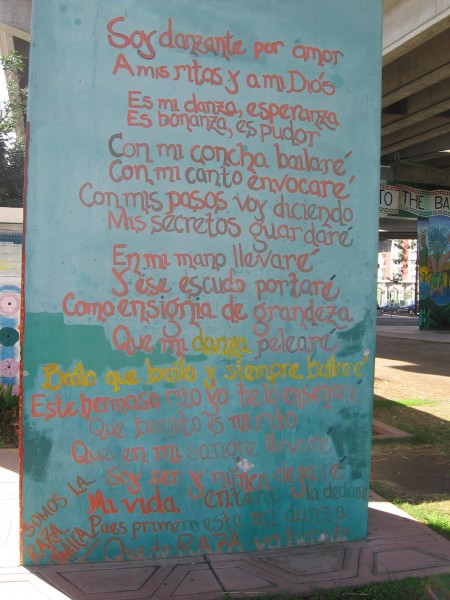 Soy danzante por amor
A mis ritos y a mi Diós
Es mi danza, esperanza
Es bonanza, es pudor
Con mi concha bailaré
Con mi canto envocaré
Con mis pasos voy diciendo
Mis secretos guardaré
En mi mano llevaré
Y ése escudo portaré
Como ensignia de grandeza
Que mi danza pelearé
Bailo que bailo y siempre bailaré
Este hermoso rito yo te lo enseñaré
Que bonito es mi rito
Que en mi sangre llevaré
Soy ser y nunca dejaré
Mi vida entera la dedicaré
Pues primero esta mi danza
RAZA
SOMOS LA
RAZA
TO THE BA